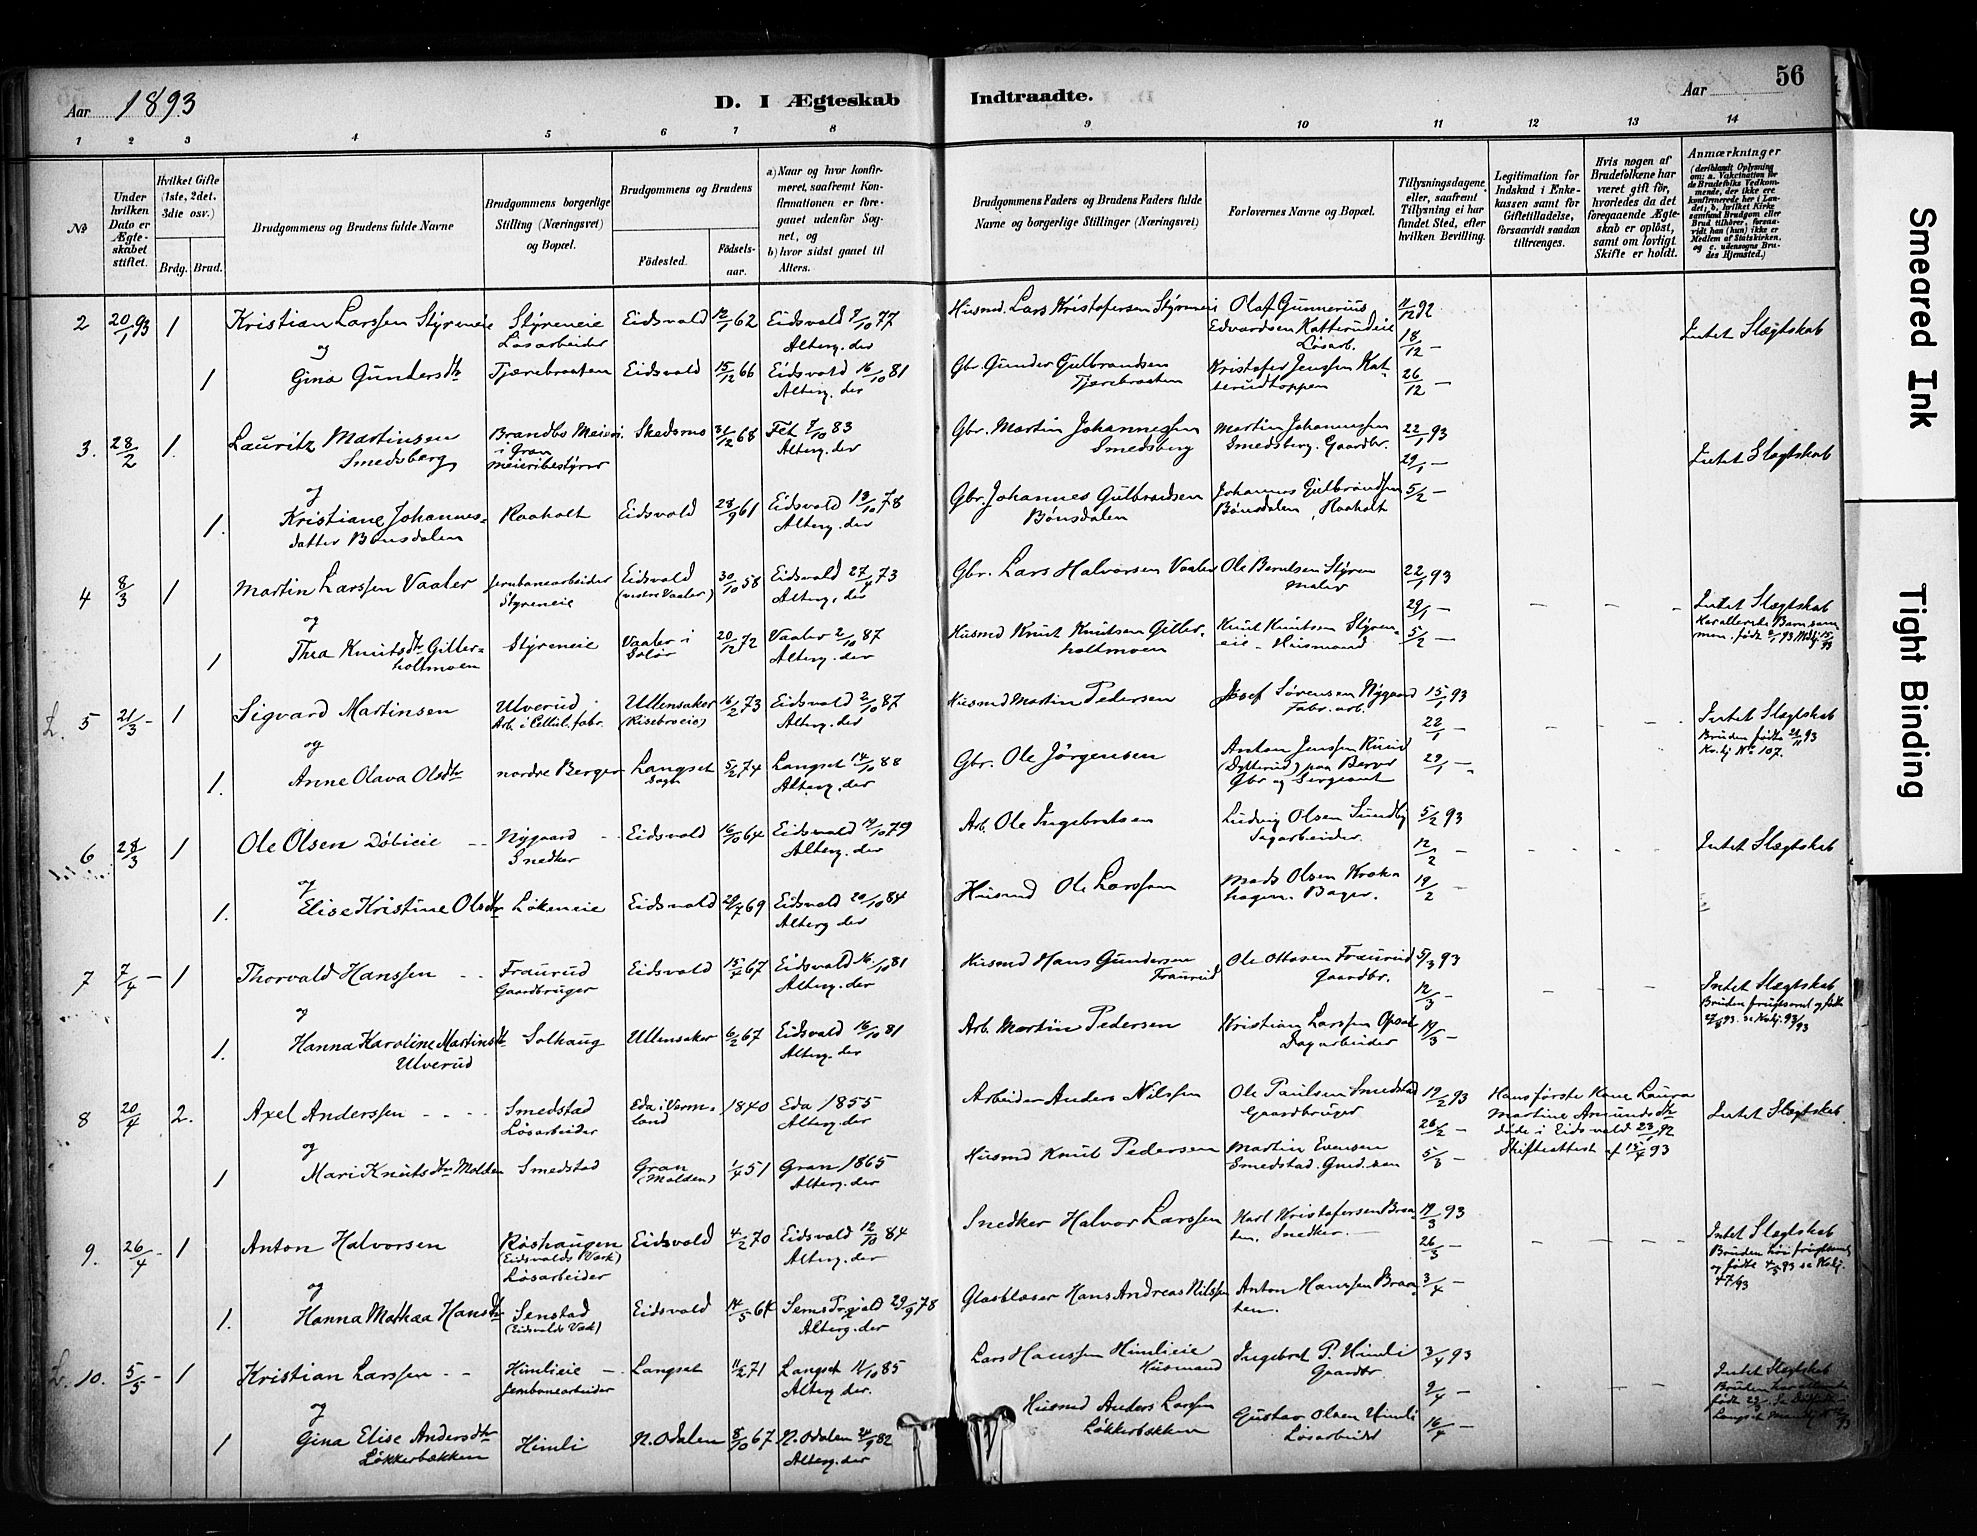 56
Aar 1893
D. I Ægteskab Indtraadte.
Aar
1 2 3 4 5 6 7 8 9 10 11 12 13 14
No
Under hvilken Dato er Ægteskabet stiftet.
Hvilket Gifte (1ste, 2det, 3die osv.)
Brdg. Brud.
Brudgommens og Brudens fulde Navne
Brudgommens borgerlige Stilling (Næringsvei) og Bopæl.
Brudgommens og Brudens
Födested.
Födsels-aar.
a) Naar og hvor konfirmeret, saafremt Konfirmationen er foregaaet udenfor Sognet, og
b) hvor sidst gaaet til Alters.
Brudgommens Faders og Brudens Faders fulde Navne og borgerlige Stillinger (Næringsvei)
Forlovernes Navne og Bopæl.
Tillysningsdagene, eller, saafremt Tillysning ei har fundet Sted, efter hvilken Bevilling.
Legitimation for Indskud i Enkekassen samt for Giftetilladelse, forsaavidt saadan tiltrænges.
Hvis nogen af Brudefolkene har været gift för, hvorledes da det foregaaende Ægteskab er oplöst, samt om lovligt Skifte er holdt.
Anmærkninger
(deriblandt Oplysning om: a. Vakcination for de Brudefolks Vedkommende, der ikke ere konfirmerede her i Landet; b. hvilket Kirkesamfund Brudgom eller Brud tilhörer, forsaavidt han (hun) ikke er Medlem af Statskirken, og c. udensogns Brudes Hjemsted.)
2 20/1 93 1 Kristian Larssen Styreneie Styreneie Løsarbeider Eidsvold 12/1 62 Eidsvold 7/10 77 Alterg. der Husmd. Lars Kristofersen Styreneie Olaf Gunnerius Edvardsen Katterudeie Løsarb. 11/12 92 18/12 — Intet Slægtskab
og
1 Gina Gundersdtr Tjærebraaten Eidsvold 15/12 66 Eidsvold 16/10 81 Alterg. der Gbr. Gunder Gulbrandsen Tjærebraaten Kristofer Jenssen Katterudtoppen 26/12 —
3. 28/2 1. Lauritz Martinsen Smedsberg Brandbo Meieri i Gran Meieribestyrer Skedsmo 31/12 68 Fet 7/10 83 Alterg. der Gbr. Martin Johannessen Smedsberg Martin Johannessen Smedsberg. Gaardbr. 22/1 93 29/1 — Intet Slægtskab
og
1. Kristiane Johannesdatter Bønsdalen Raaholt Eidsvold 28/9 61 Eidsvold 13/10 78 Alterg. der Gbr. Johannes Gulbrandsen Bønsdalen Johannes Gulbrandsen Bønsdalen, Raaholt 5/2 —
4 8/3 1 Martin Larssen Vaaler Jernbanearbeider Styreneie Eidsvold (nedre Vaaler) 30/10 58 Eidsvold 27/4 73 Alterg. der Gbr. Lars Halvorsen Vaaler Ole Berntsen Styren Maler 22/1 93 29/1 — Intet Slægtskab
Har allerede Barn sammen. født
og
1 Thea Knutsdtr Gitterholtmoen Styreneie Vaaler i Solør 20/12 72 Vaaler 2/10 87 Alterg. der Husmd Knut Knutsen Gitterholtmoen Knut Knutsen Styreneie - Husmand 5/2 —
L. 5 21/3 - 1 Sigvard Martinsen Ulverud Arb. i Cellul. fabr. Ullensaker (Risebroeie) 16/2 73 Eidsvold 2/10 87 Alterg. der Husmd Martin Pedersen Josef Sørensen Nygaard Fabr. arb. 15/1 93 22/1 — Intet Slægtskab
Bruden fødte 21/11 93 No 107.
og
1. Anne Olava Olsdtr nordre Berger Langset Sogn 5/2 74 Langset 14/10 88 Alterg. der Gbr. Ole Jørgensen Anton Jenssen Ruud (Dytterud) paa Berger Gbr og Sergeant 29/1 —
6 28/3 1 Ole Olsen Døbieie Nygaard Snedker Eidsvold 16/10 64 Eidsvold 19/10 79 Alterg. der Arb. Ole Ingebretsen Ludvig Olsen Sundby Dagarbeider. 5/2 93 12/2 — Intet Slægtskab
og
1. Elise Kristine Olsdtr Løkeneie Eidsvold 29/7 69 Eidsvold 20/10 84 Alterg der Husmd Ole Larssen Mads Olsen Krokhagen. Bager. 19/2 —
7 7/4 — 1 Thorvald Hanssen Fraurud Gaardbruger Eidsvold 15/4 67 Eidsvold 16/10 81 Alterg. der Husmd Hans Gundersen Fraurud Ole Ottosen Fraurud Gaardbr. 5/3 93 12/3 — Intet Slægtskab
Bruden frugtsoml og fødte
og
1. Hanna Karoline Martinsdtr Ulverud Solhaug Ullensaker 6/2 67 Eidsvold 16/10 81 Alterg. der Arb. Martin Pedersen Kristian Larssen Opsal Dagarbeider 19/3 —
8 20/4 2. Axel Anderssen Smedstad Løsarbeider Eda i Vermland 1840 Eda 1855 Alterg. der Arbeider Anders Nilssen Ole Paulsen Smedstad Gaardbruger 19/2 93 26/2 — Hans første Kone Laura Martine Amundsdtr døde i Eidsvold 23/1 92 Skifteattest af 15/4 93 Intet Slægtskab
og
1 Mari Knutsdtr Molden Smedstad Gran (Molden) 1/4 51 Gran 1865 Alterg. der Husmd Knut Pedersen Martin Evensen Smedstad. 5/3 —
9. 26/4 - 1 Anton Halvorsen Røshaugen (Eidsvolds Værk) Løsarbeider Eidsvold 4/2 70 Eidsvold 12/10 84 Alterg. der Snedker Halvor Larssen Karl Kristofersen Braaten. Snedker. 19/3 93 26/3 — Intet Slægtskab
Bruden høi frugtsoml og fødte 4/5 93 se Kblj. 47/93
og
1. Hanna Mathea Hansdtr Senstad (Eidsvolds Værk) Eidsvold 14/5 64 29/9 78 Alterg. der Glasblaser Hans Andreas Nilssen Anton Hanssen Braaten. 3/4 —
L. 10. 5/5 - 1 Kristian Larssen Himlieie Jernbanearbeider Langset 11/2 71 Langset 11/10 85 Alterg der. Lars Hanssen Himlieie Husmand Ingebret P. Himli Gaardbr 3/4 93 9/4 — Intet Slægtskab
og
1 Gina Elise Andersdtr Løkkerbakken Himli N. Odalen 8/10 67 N. Odalen 24/9 82 Alterg. der Husmd Anders Larssen Løkkerbakken Gustav Olsen Himli Løsarbeider 16/4 —
Smeared Ink
Tight Binding